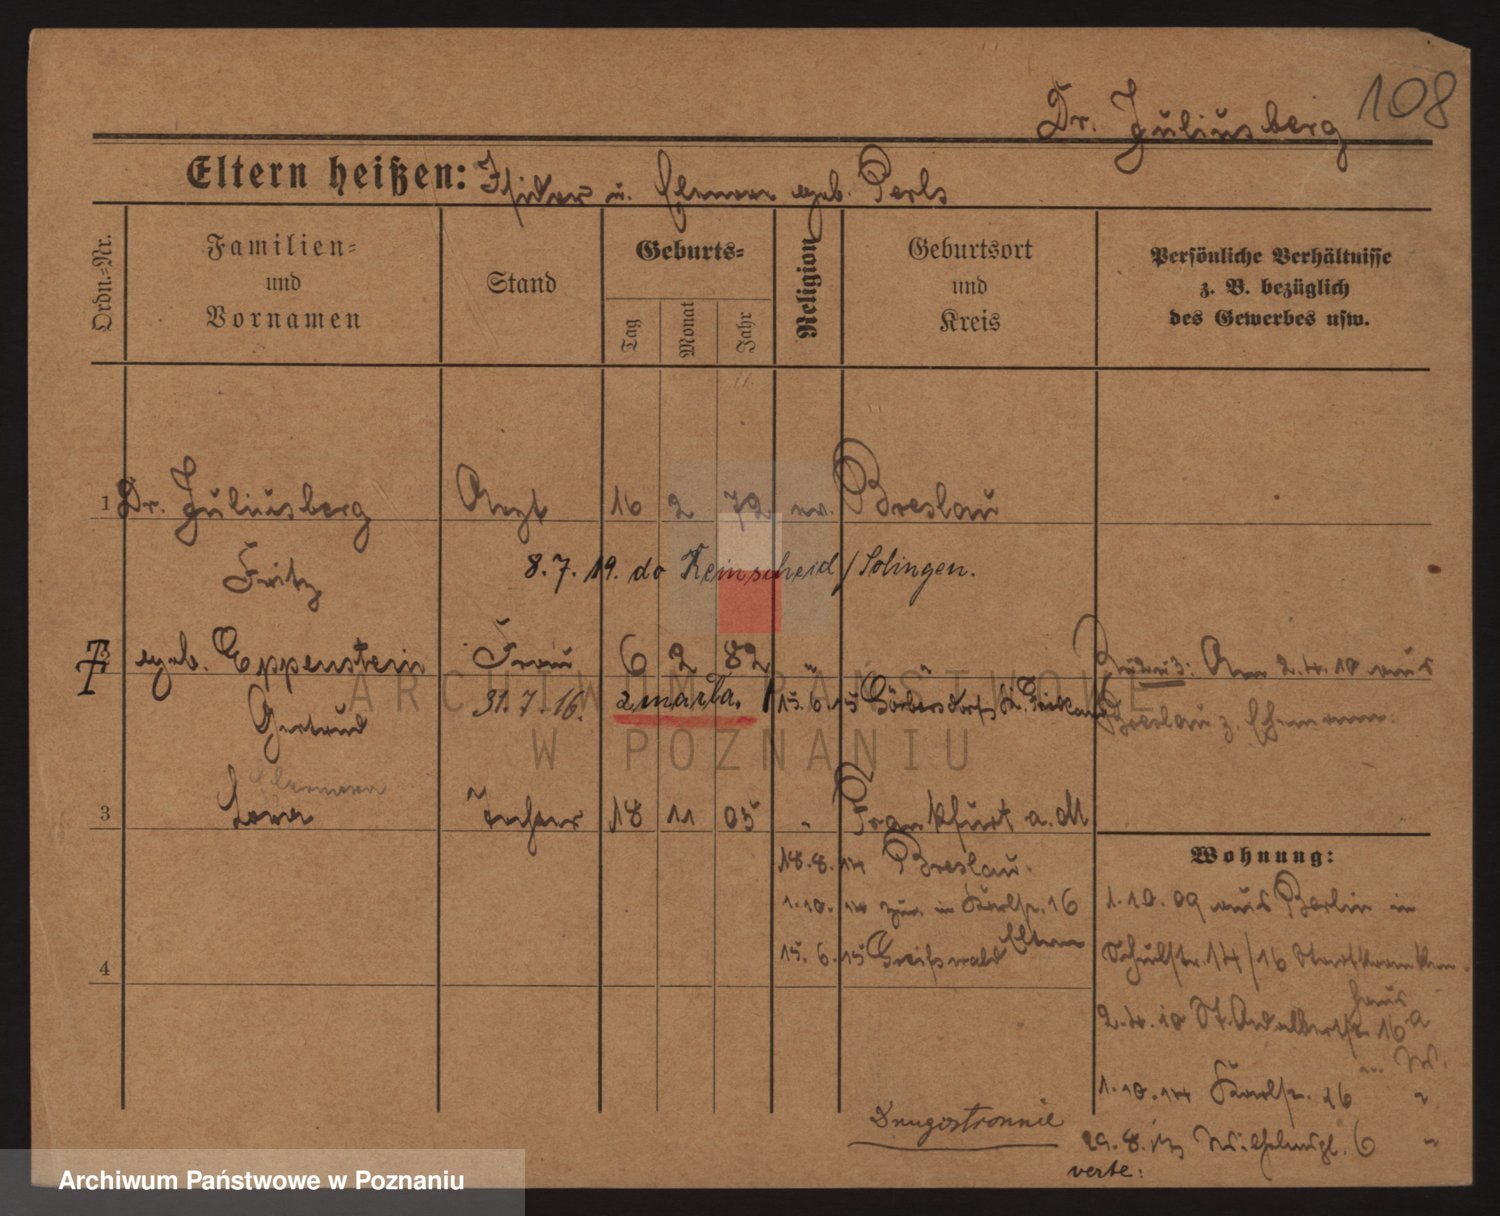 108
Dr. Juliusberg
Eltern heißen: Isidor u. geb. Perls
Ordn.=Nr.
Familien=
und
Vornamen
Stand
Geburts=
Tag
Monat
Jahr
Religion
Geburtsort
und
Kreis
Persönliche Verhältnisse
z. B. bezüglich
des Gewerbes usw.
1 Dr. Juliusberg Arzt 16 2 72 ev. Breslau
Fritz
8. 7. 19. do Remscheid / Solingen.
2 geb. Eppenstein Frau 6 2 82 "
Am 2.4.10 aus
Gertrud 31. 7. 16. zmarła. 15. 6. 15 Görbersdorf
Breslau z. Ehemann.
3 Tochter 18 11 05 Frankfurt a. M
18. 8. 14 Breslau.
1. 10. 14 zur. in Karlstr. 16
15. 6. 15 Greifswald Eltern
4
Wohnung:
1. 10. 09 aus Berlin in
Schulstr. 14/16 Stadtkranken
haus
2. 4. 10 St. Adalbertstr. 16a
1. 10. 14 Karlstr. 16 "
29. 8. Wilhelmpl. 6 "
Drugostronnie
verte:
ARCHIWUM PAŃSTWOWE
W POZNANIU
Archiwum Państwowe w Poznaniu